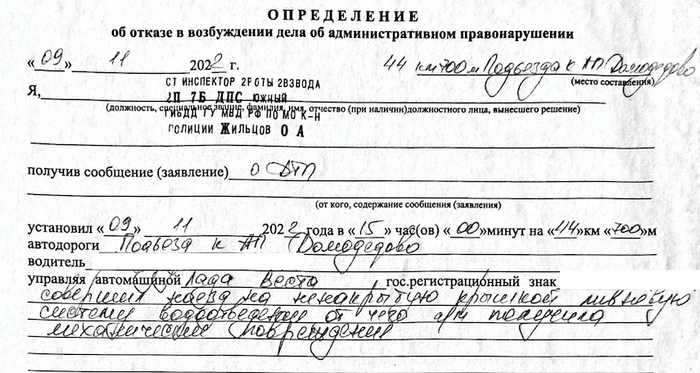 ОПРЕДЕЛЕНИЕ
об отказе в возбуждении дела об административном правонарушении
« 09 » 11 2022 г. 44 км 700 м Подъезда к АП Домодедово
(место составления)
Я, СТ ИНСПЕКТОР 2РОТЫ 2ВЗВОДА
2П 7Б ДПС ЮЖНЫЙ
(должность, специальное звание, фамилия, имя, отчество (при наличии)должностного лица, вынесшего решение)
ГИБДД ГУ МВД РФ ПО МО К-Н
ПОЛИЦИИ ЖИЛЬЦОВ О А
получив сообщение (заявление) о ДТП
(от кого, содержание сообщения (заявления)
установил « 09 » 11 2022 года в « 15 » час(ов) « 00 »минут на «44»км «700»м
автодороги Подъезд к АП Домодедово
водитель
управляя автомашиной Лада Веста гос.регистрационный знак
совершил наезд на ненакрытую крышкой ливневую
систему водоотведения от чего а/м получила
механические повреждения